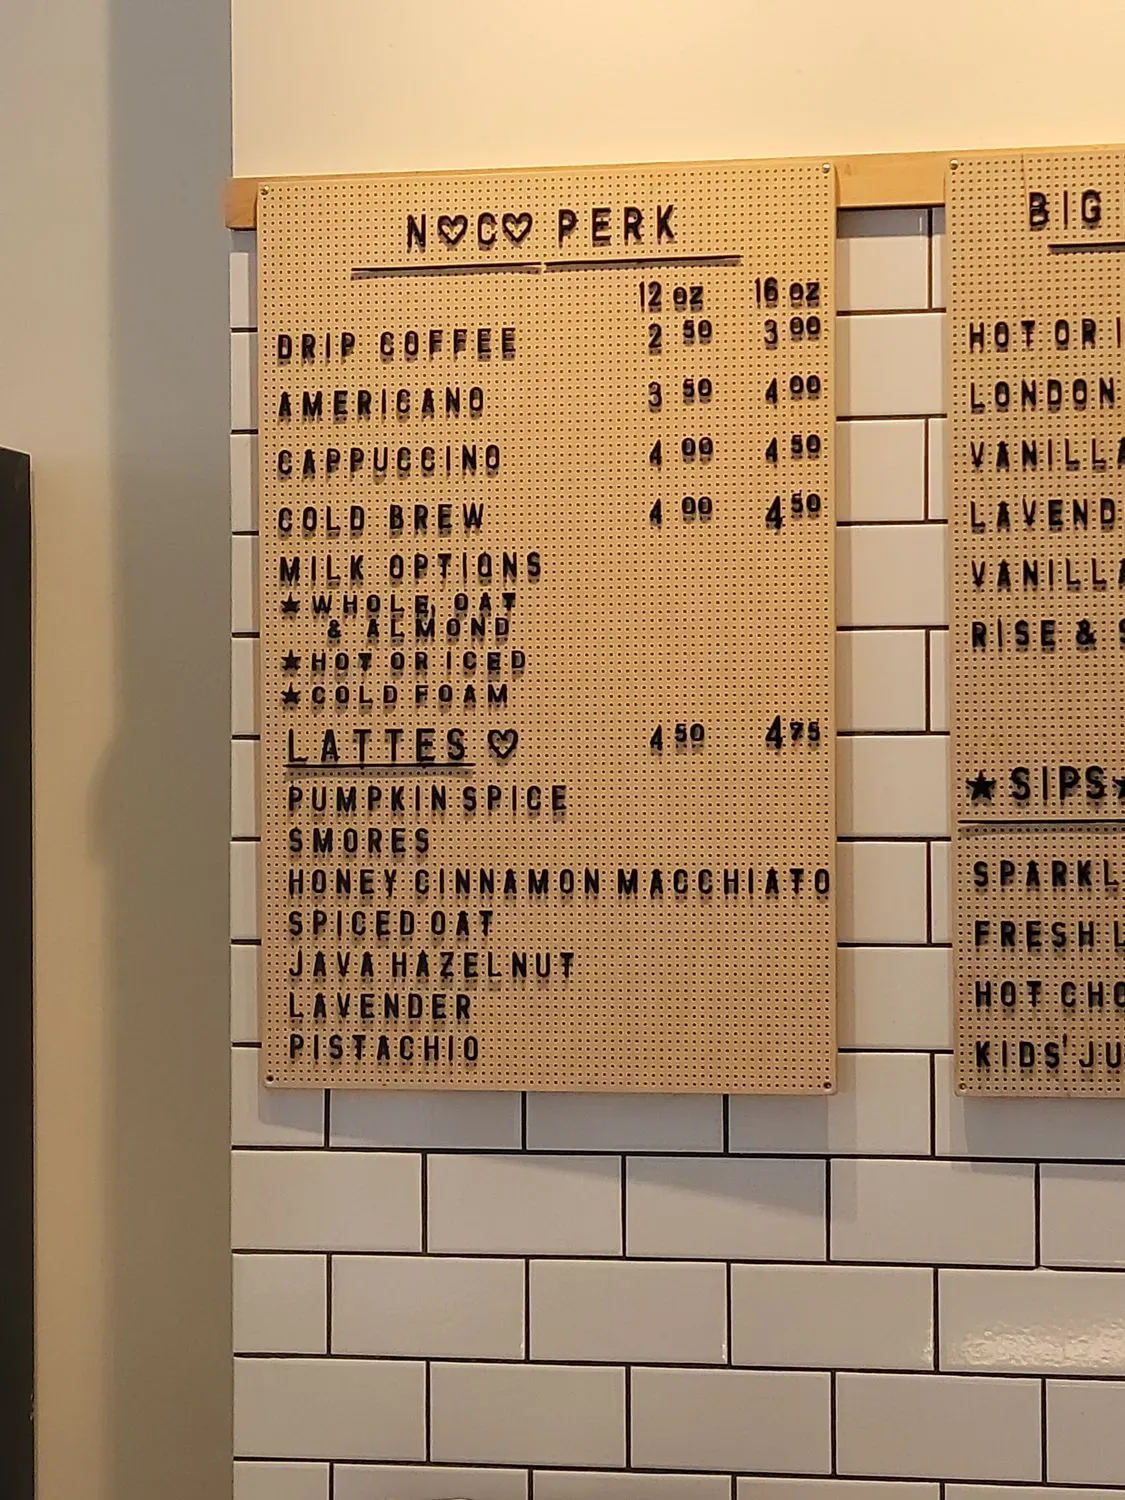 N♡C♡ PERK
12 oz 16 oz
DRIP COFFEE 2 50 3 00
AMERICANO 3 50 4 00
CAPPUCCINO 4 00 4 50
COLD BREW 4 00 4 50
MILK OPTIONS
★WHOLE, OAT
& ALMOND
★HOT OR ICED
★COLD FOAM
LATTES ♡ 4 50 4 75
PUMPKIN SPICE
SMORES
HONEY CINNAMON MACCHIATO
SPICED OAT
JAVA HAZELNUT
LAVENDER
PISTACHIO
BIG
HOT OR I
LONDON
VANILLA
LAVEND
VANILLA
RISE & S
★SIPS★
SPARKL
FRESH L
HOT CHO
KIDS' JU